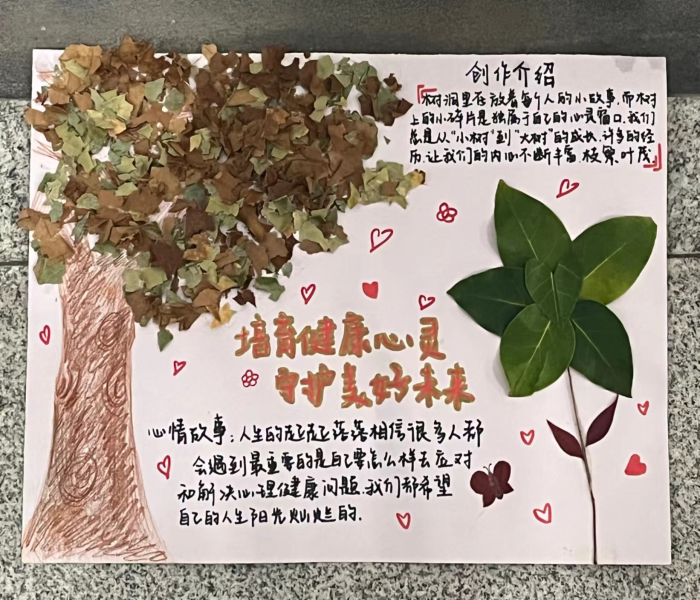 创作介绍
『树洞里存放着每个人的小故事,而树
上的小碎片是独属于自己的心灵窗口,我们
总是从“小树”到“大树”的成长,许多的经
历,让我们的内心不断丰富,枝繁叶茂』
培育健康心灵
守护美好未来
心情故事:人生的起起落落相信很多人都
会遇到最重要的是自己要怎么样去应对
和解决心理健康问题.我们都希望
自己的人生阳光灿烂的.